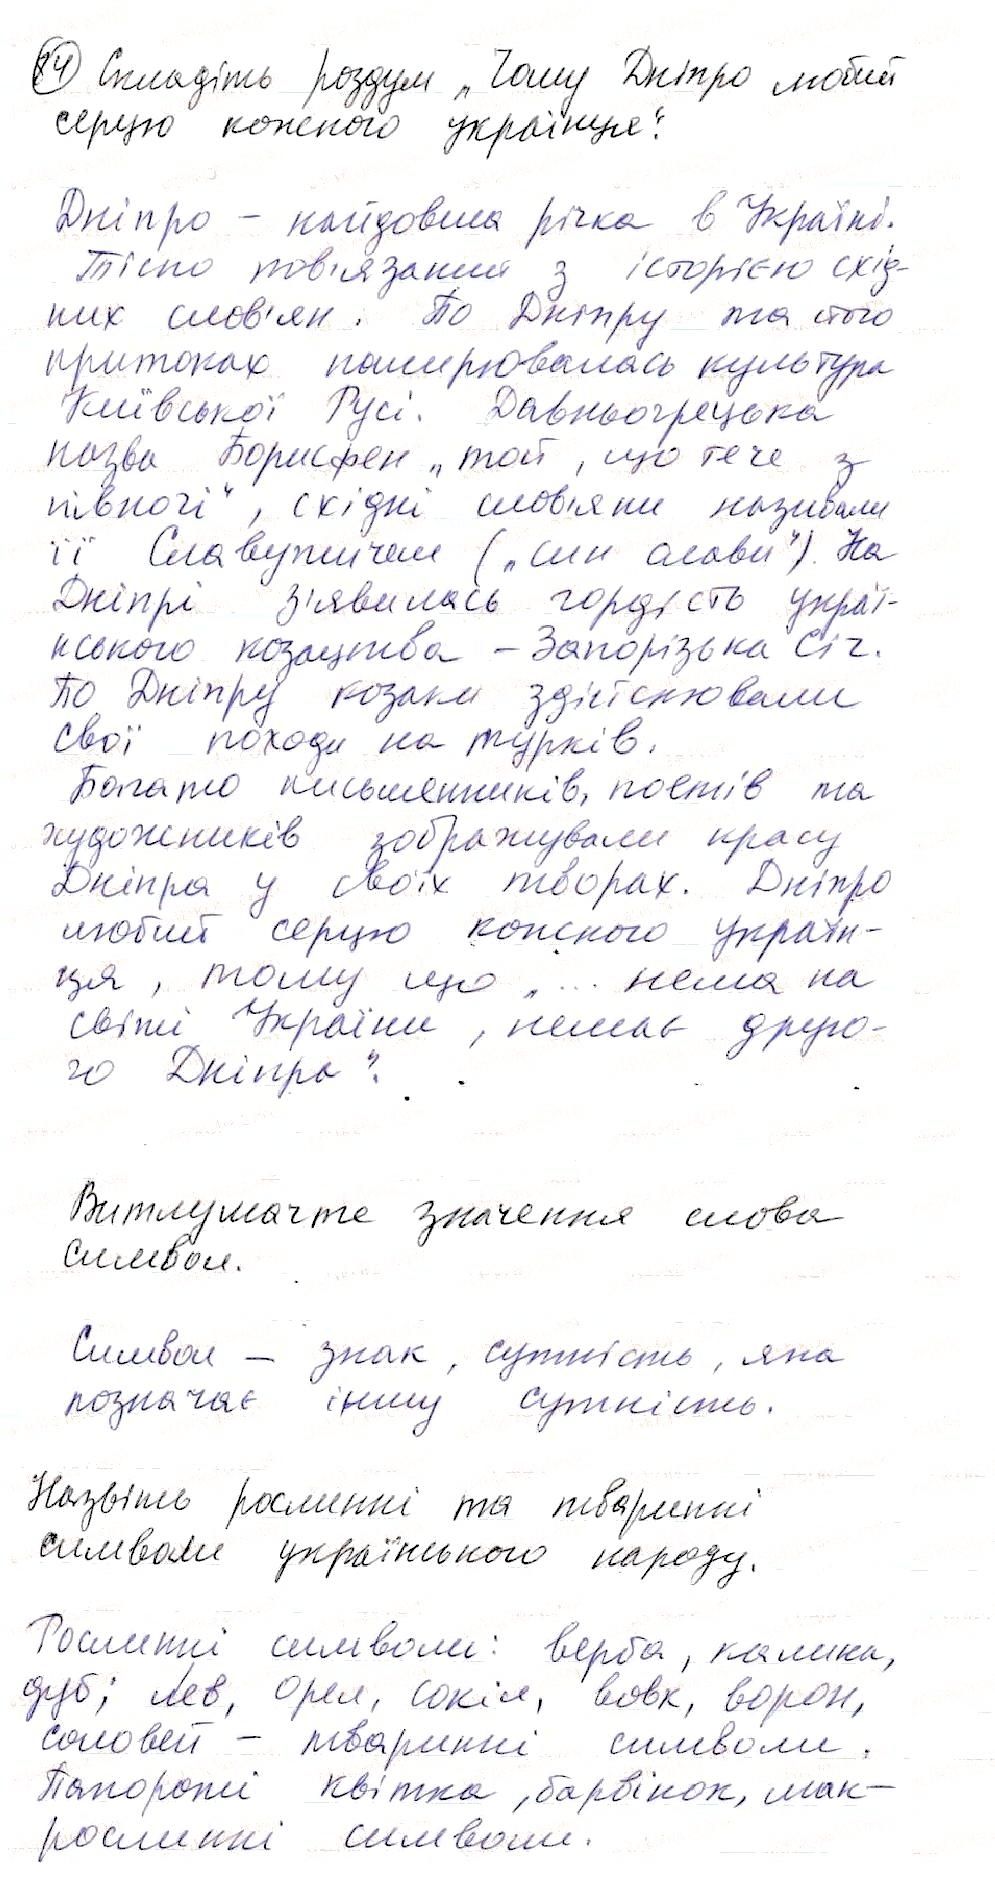 84 Складіть роздум „Чому Дніпро любий
серцю кожного українця".
Дніпро – найдовша річка в Україні.
Тісно пов'язаний з історією схід-
них слов'ян. По Дніпру та його
притоках поширювалась культура
Київської Русі. Давньогрецька
назва Борисфен „той, що тече з
півночі", східні слов'яни називали
її Славутичем („син слави"). На
Дніпрі з'явилась гордість украї-
нського козацтва – Запорізька Січ.
По Дніпру козаки здійснювали
свої походи на турків.
Багато письменників, поетів та
художників зображували красу
Дніпра у своїх творах. Дніпро
любий серцю кожного україн-
ця, тому що „... нема на
світі України, немає друго-
го Дніпра".
Витлумачте значення слова
символ.
Символ – знак, сутність, яка
позначає іншу сутність.
Назвіть рослинні та тваринні
символи українського народу.
Рослинні символи: верба, калина,
дуб; лев, орел, сокіл, вовк, ворон,
соловей – тваринні символи.
Папороті квітка, барвінок, мак –
рослинні символи.